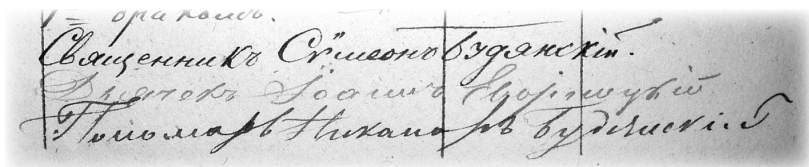 Священникъ Сѵмеонъ Будянскій.
Дьячекъ Іоаннъ
Пономарь Никаноръ Будянскій